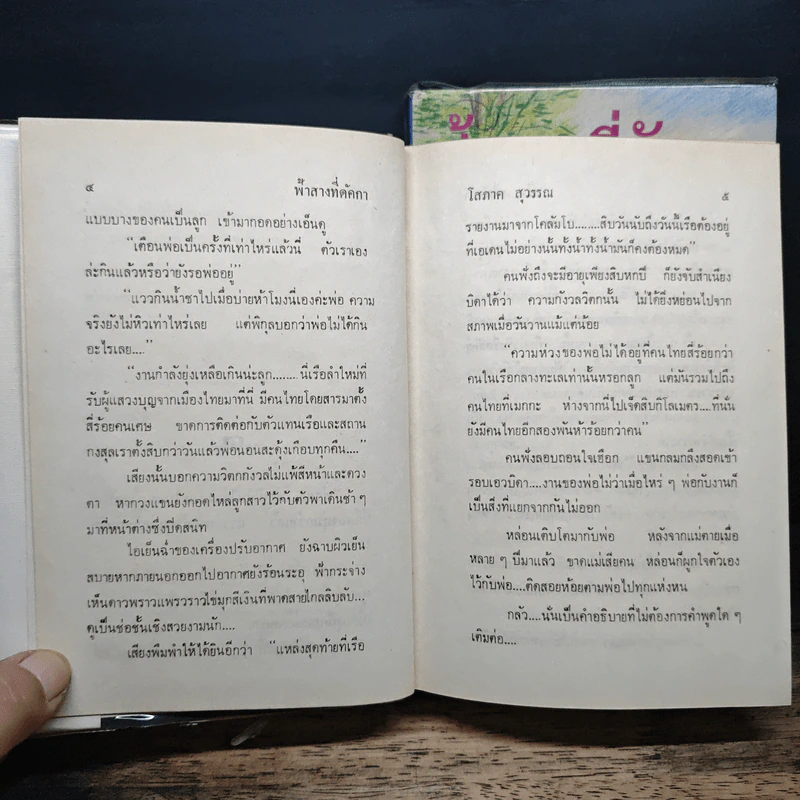 ๔ ฟ้าสางที่ดัคกา
แบบบางของคนเป็นลูก เข้ามากอดอย่างเอ็นดู
“เตือนพ่อเป็นครั้งที่เท่าไหร่แล้วนี่ ตัวเราเอง
ล่ะกินแล้วหรือว่ายังรอพ่ออยู่”
“แววกินน้ำชาไปเมื่อบ่ายห้าโมงนี่เองค่ะพ่อ ความ
จริงยังไม่หิวเท่าไหร่เลย แต่พิกุลบอกว่าพ่อไม่ได้กิน
อะไรเลย....”
“งานกำลังยุ่งเหลือเกินน่ะลูก.......นี่เรือลำใหม่ที่
รับผู้แสวงบุญจากเมืองไทยมาที่นี่ มีคนไทยโดยสารมาตั้ง
สี่ร้อยคนเศษ ขาดการติดต่อกับตัวแทนเรือและสถาน
กงสุลเราตั้งสิบกว่าวันแล้วพ่อนอนสะดุ้งเกือบทุกคืน....”
เสียงนั้นบอกความวิตกกังวลไม่แพ้สีหน้าและดวง
ตา หากวงแขนยังกอดไหล่ลูกสาวไว้กับตัวพาเดินช้า ๆ
มาที่หน้าต่างซึ่งปิดสนิท
ไอเย็นฉ่ำของเครื่องปรับอากาศ ยังฉาบผิวเย็น
สบายหากภายนอกออกไปอากาศยังร้อนระอุ ฟ้ากระจ่าง
เห็นดาวพราวแพรวราวไข่มุกสีเงินที่พาดสายไกลลิบลับ...
ดูเป็นช่อชั้นเชิงสวยงามนัก....
เสียงพึมพำให้ได้ยินอีกว่า “แหล่งสุดท้ายที่เรือ
โสภาค สุวรรณ ๕
รายงานมาจากโคลัมโบ........สิบวันนับถึงวันนี้เรือต้องอยู่
ที่เอเดนไม่อย่างนั้นทั้งน้ำทั้งน้ำมันก็คงต้องหมด”
คนฟังถึงจะมีอายุเพียงสิบหกปี ก็ยังจับสำเนียง
บิดาได้ว่า ความกังวลวิตกนั้น ไม่ได้ยิ่งหย่อนไปจาก
สภาพเมื่อวันวานแม้แต่น้อย
“ความห่วงของพ่อไม่ได้อยู่ที่คนไทยสี่ร้อยกว่า
คนในเรือกลางทะเลเท่านั้นหรอกลูก แต่มันรวมไปถึง
คนไทยที่เมกกะ ห่างจากนี่ไปเจ็ดสิบกิโลเมตร....ที่นั่น
ยังมีคนไทยอีกสองพันห้าร้อยกว่าคน”
คนฟังลอบถอนใจเฮือก แขนกลมกลึงสอดเข้า
รอบเอวบิดา....งานของพ่อไม่ว่าเมื่อไหร่ ๆ พ่อกับงานก็
เป็นสิ่งที่แยกจากกันไม่ออก
หล่อนเติบโตมากับพ่อ หลังจากแม่ตายเมื่อ
หลาย ๆ ปีมาแล้ว ขาดแม่เสียคน หล่อนก็ผูกใจตัวเอง
ไว้กับพ่อ....ติดสอยห้อยตามพ่อไปทุกแห่งหน
กลัว....นั่นเป็นคำอธิบายที่ไม่ต้องการคำพูดใด ๆ
เติมต่อ....